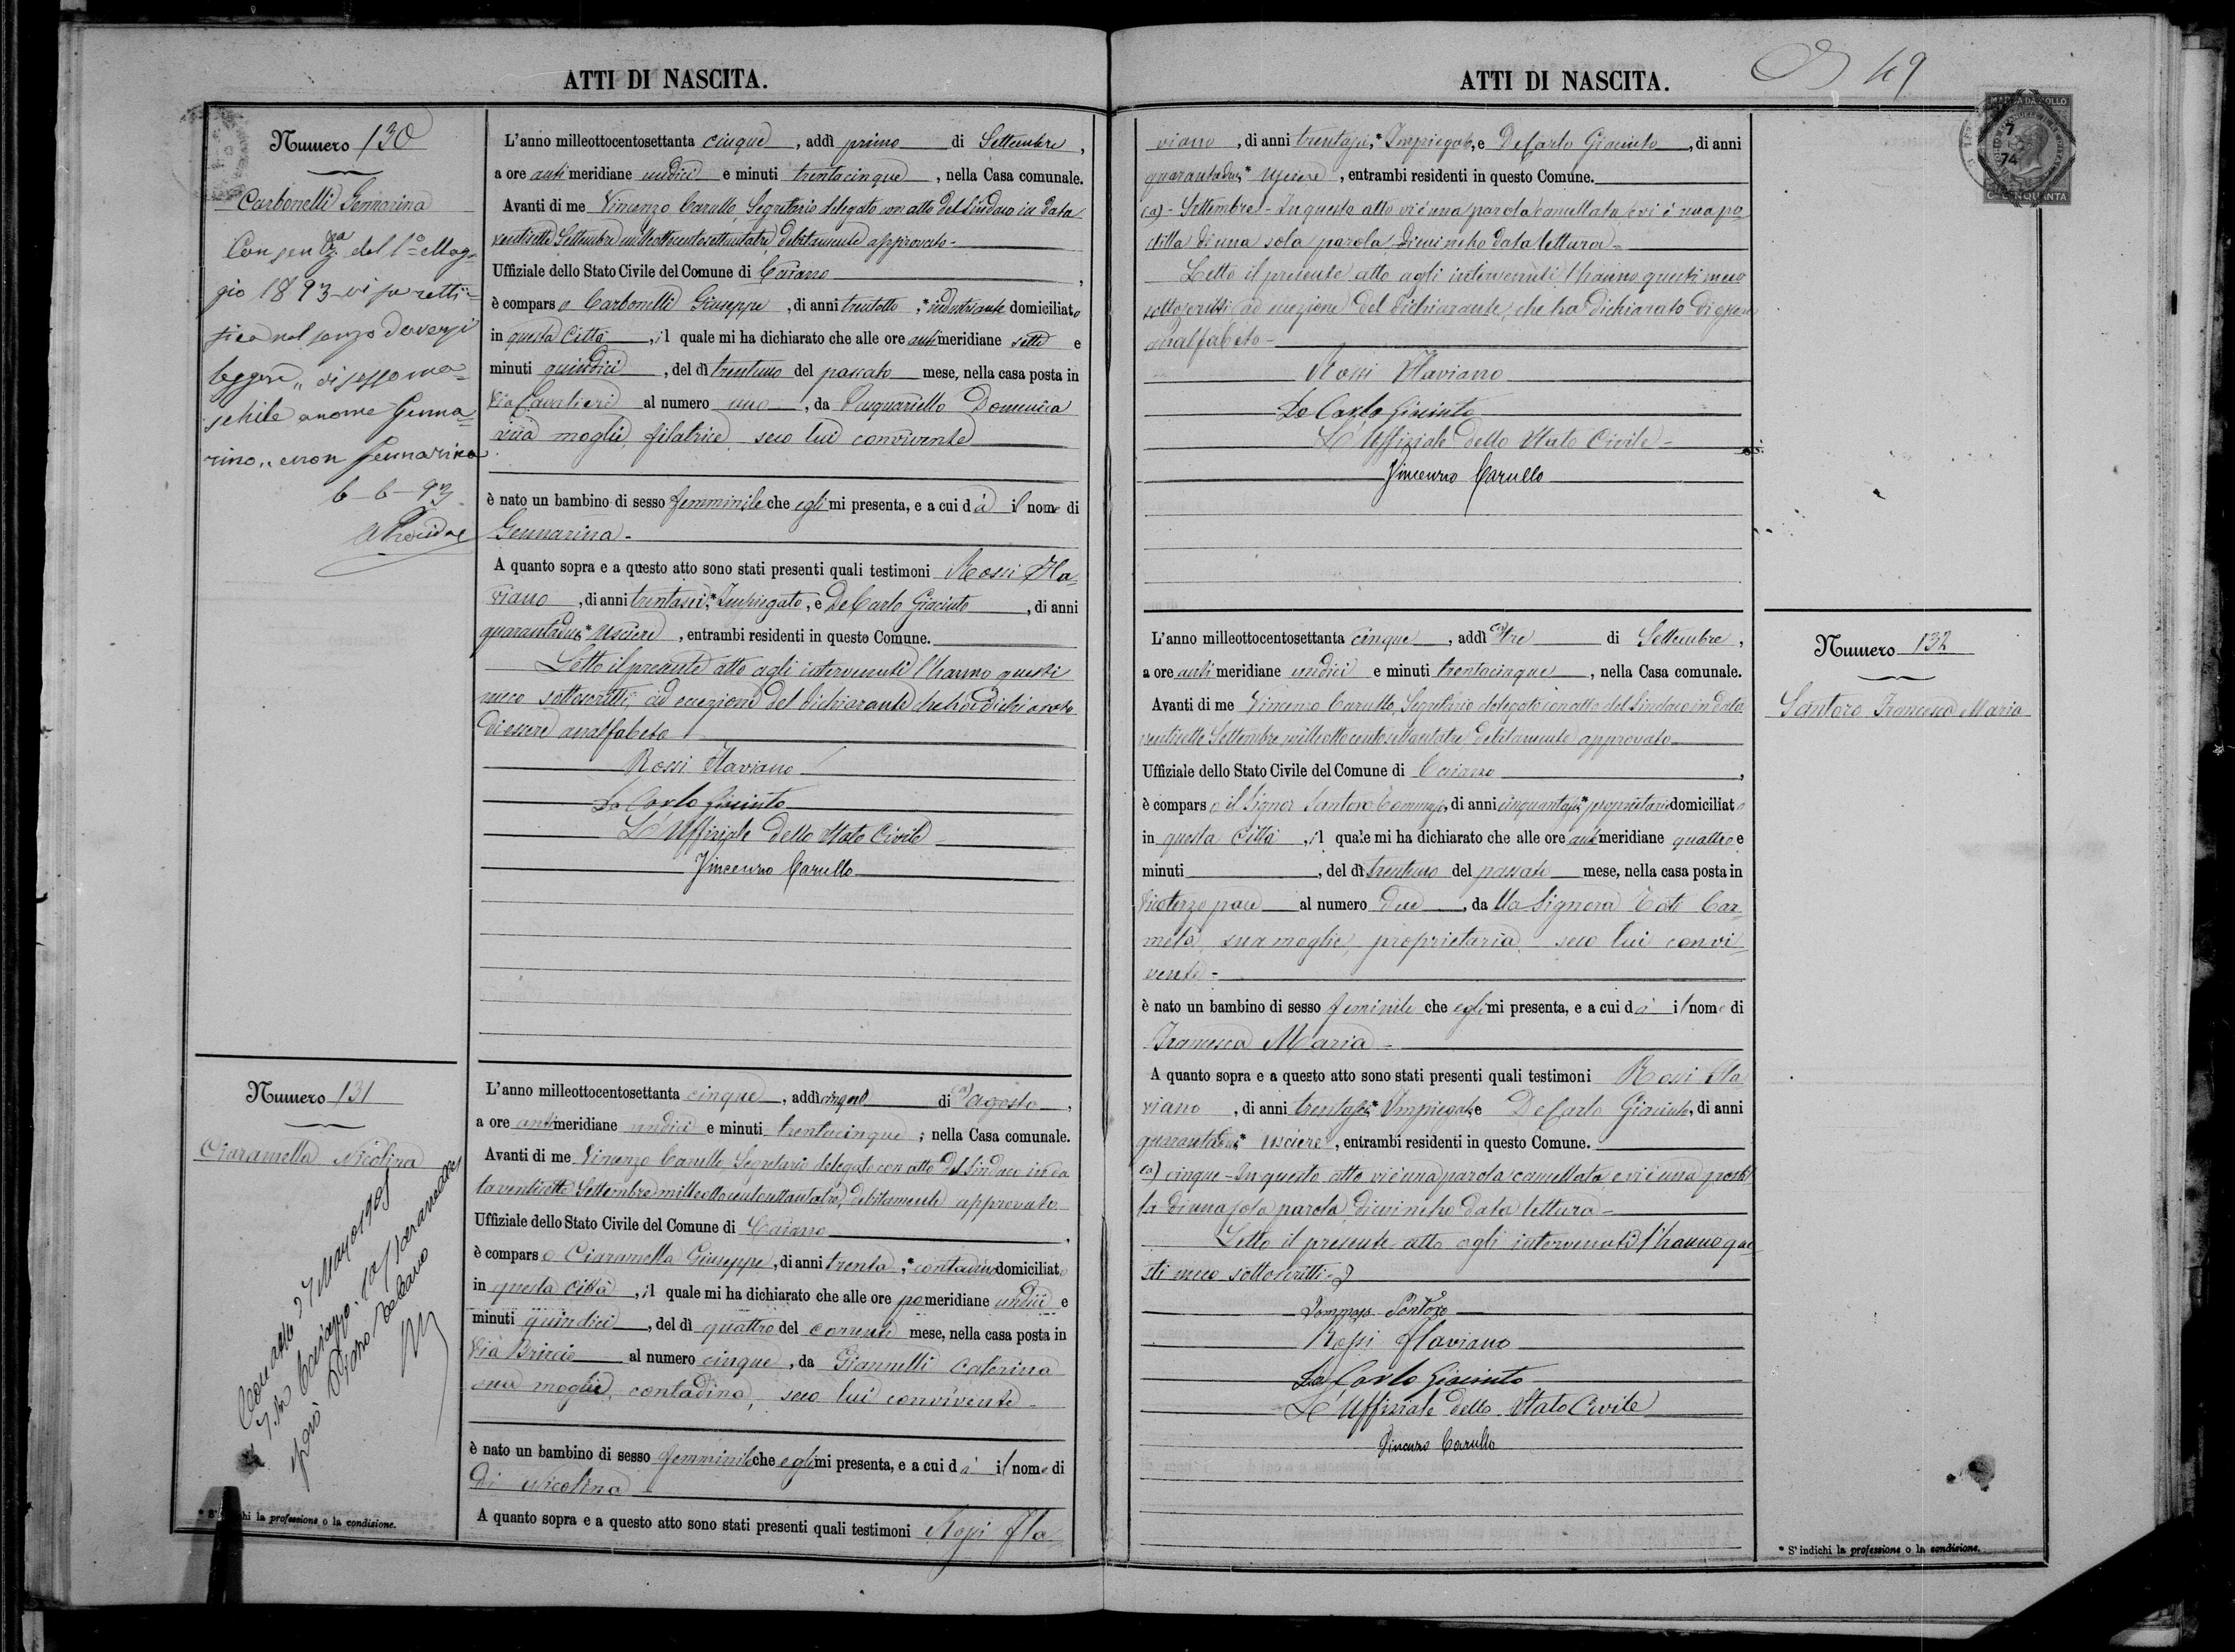 ATTI DI NASCITA.
Numero 130
Carbonelli Gennarina
Con senza del 1º Mag=
gio 1893 vi fu retti=
fica nel senso doversi
leggere „ di sesso ma=
schile a nome Genna=
rino „ e non Gennarina
6-6-93
L'anno milleottocentosettanta cinque, addì primo di Settembre,
a ore anti meridiane undici e minuti trentacinque, nella Casa comunale.
Avanti di me Vincenzo Carullo, Segretario delegato con atto del Sindaco in data
ventisette Settembre milleottocentosettantatre, debitamente approvato-
Uffiziale dello Stato Civile del Comune di Caiazzo,
è comparso Carbonelli Giuseppe, di anni trentotto, * industriante domiciliato
in questa Città, il quale mi ha dichiarato che alle ore antimeridiane sette e
minuti quindici, del dì trentuno del passato mese, nella casa posta in
Via Cavalieri al numero uno, da Pasquariello Domenica
sua moglie, filatrice, seco lui convivente
è nato un bambino di sesso femminile che egli mi presenta, e a cui dà il nome di
Gennarina-
A quanto sopra e a questo atto sono stati presenti quali testimoni Rossi Fla=
viano, di anni trentasei, * Impiegato, e DeCarlo Giacinto, di anni
quarantadue * Usciere, entrambi residenti in questo Comune.
Letto il presente atto agli intervenuti l'hanno questi
meco sottoscritti, ad eccezione del dichiarante che ha dichiarato
di essere analfabeto
Rossi Flaviano
De Carlo Giacinto
L'Uffiziale dello Stato Civile-
Vincenzo Carullo
Numero 131
Ciaramella Nicolina
L'anno milleottocentosettanta cinque, addì cinque di (a) agosto,
a ore antimeridiane undici e minuti trentacinque; nella Casa comunale.
Avanti di me Vincenzo Carullo, Segretario delegato con atto del Sindaco in da
ta ventisette Settembre milleottocentosettantatre, debitamente approvato
Uffiziale dello Stato Civile del Comune di Caiazzo,
è comparso Ciaramella Giuseppe, di anni trenta, * contadino domiciliato
in questa Città, il quale mi ha dichiarato che alle ore pomeridiane undici e
minuti quindici, del dì quattro del corrente mese, nella casa posta in
Via al numero cinque, da Giannelli Caterina
sua moglie, contadina, seco lui convivente-
è nato un bambino di sesso femminile che egli mi presenta, e a cui dà il nome di
di Nicolina
A quanto sopra e a questo atto sono stati presenti quali testimoni Rossi Fla
* S'indichi la professione o la condizione.
ATTI DI NASCITA.
49
MARCA DA BOLLO
7
74
viano, di anni trentasei, * Impiegato, e DeCarlo Giacinto, di anni
quarantadue * usciere, entrambi residenti in questo Comune.
(a)- Settembre- In questo atto vi è una parola cancellata e vi è una po
stilla di una sola parola di cui ne ho data lettura-
Letto il presente atto agli intervenuti l'hanno questi meco
sottoscritti ad eccezione del dichiarante, che ha dichiarato di essere
analfabeto-
Rossi Flaviano
De Carlo Giacinto
L'Uffiziale dello Stato Civile-
Vincenzo Carullo
L'anno milleottocentosettanta cinque, addì (a) tre di Settembre,
a ore anti meridiane undici e minuti trentacinque, nella Casa comunale.
Avanti di me Vincenzo Carullo, Segretario delegato con atto del Sindaco in data
ventisette Settembre milleottocentosettantatre, debitamente approvato
Uffiziale dello Stato Civile del Comune di Caiazzo,
è comparso il Signor Santoro Tommaso, di anni cinquantasei, * proprietario domiciliato
in questa Città, il quale mi ha dichiarato che alle ore antimeridiane quattro e
minuti, del dì trentuno del passato mese, nella casa posta in
al numero due, da lla Signora Car=
mela, sua moglie, proprietaria, seco lui convi
vente-
è nato un bambino di sesso feminile che egli mi presenta, e a cui dà il nome di
Francesca Maria-
A quanto sopra e a questo atto sono stati presenti quali testimoni Rossi Fla
viano, di anni trentasei, * Impiegato, e DeCarlo Giacinto, di anni
quarantadue * usciere, entrambi residenti in questo Comune.
(a) cinque- In questo atto vi è una parola cancellata, e vi è una postil
la di una sola parola di cui ne ho data lettura-
Letto il presente atto agli intervenuti l'hanno que
sti meco sottoscritti-
Tommaso Santoro
Rossi Flaviano
De Carlo Giacinto
L'Uffiziale dello Stato Civile
Vincenzo Carullo
Numero 132
Santoro Francesca Maria
* S'indichi la professione o la condizione.